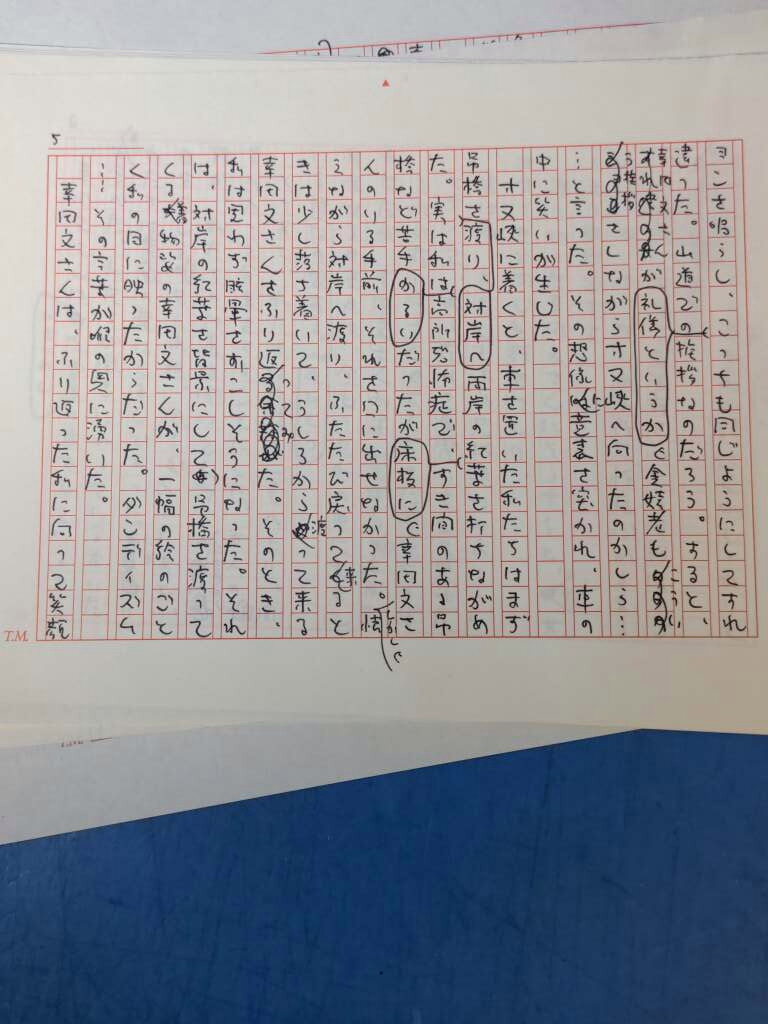 5
ヨコを鳴らし、こっちも同じようにしてすれ
違った。山道での挨拶なのだろう。すると、
幸田文さんが礼儀というか金婚老も
挨拶をしながら寸又峡へ向ったのかしら…
…と言った。その想像に意表を突かれ、車の
中に笑いが生じた。
寸又峡に着くと、車を置いた私たちはまず
吊橋を渡り、対岸へ両岸の紅葉を打ちながめ
た。実は私は高所恐怖症で、すき間のある吊
橋など苦手だったが床板に幸田文さ
んのいる手前、それを口に出せなかった。しかし
えながら対岸へ渡り、ふたたび戻って来ると
きは少し落ち着いて、うしろから渡って来る
幸田文さんをふり返ってみた。そのとき、
私は思わず眩暈をおこしそうになった。それ
は、対岸の紅葉を背景にして吊橋を渡って
くる着物姿の幸田文さんが、一幅の絵のごと
く私の目に映ったからだった。ダンディズム
…その言葉が喉の奥に湧いた。
幸田文さんは、ふり返った私に向って笑顔
T.M.